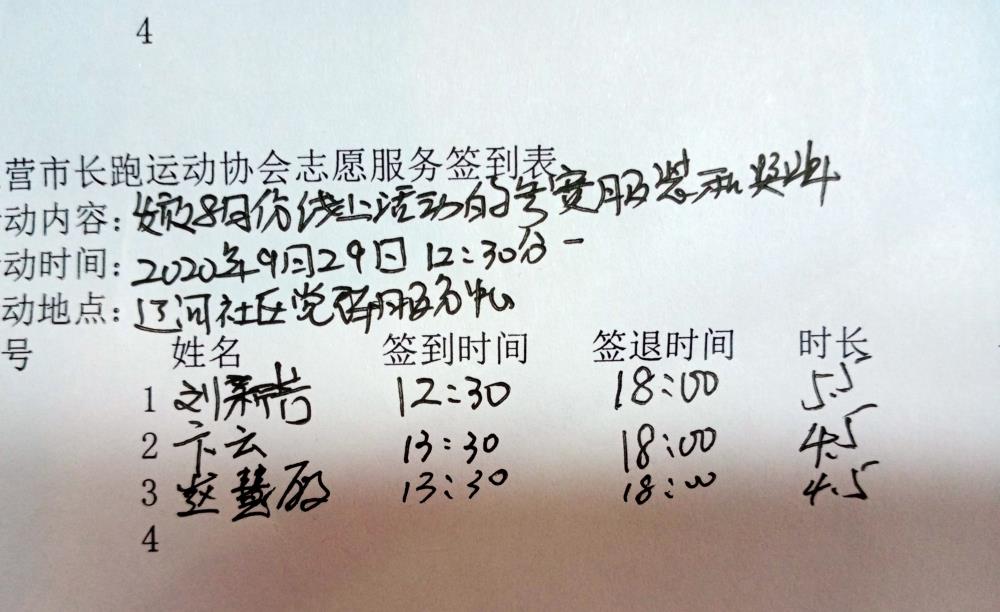 4
营市长跑运动协会志愿服务签到表
动内容：颁8月份线上活动的参赛服装和奖牌
动时间：2020年9月29日 12:30分-
动地点：辽河社区党群服务中心
号 姓名 签到时间 签退时间 时长
1 刘新 12:30 18:00 5.5
2 卞云 13:30 18:00 4.5
3 赵慧 13:30 18:00 4.5
4